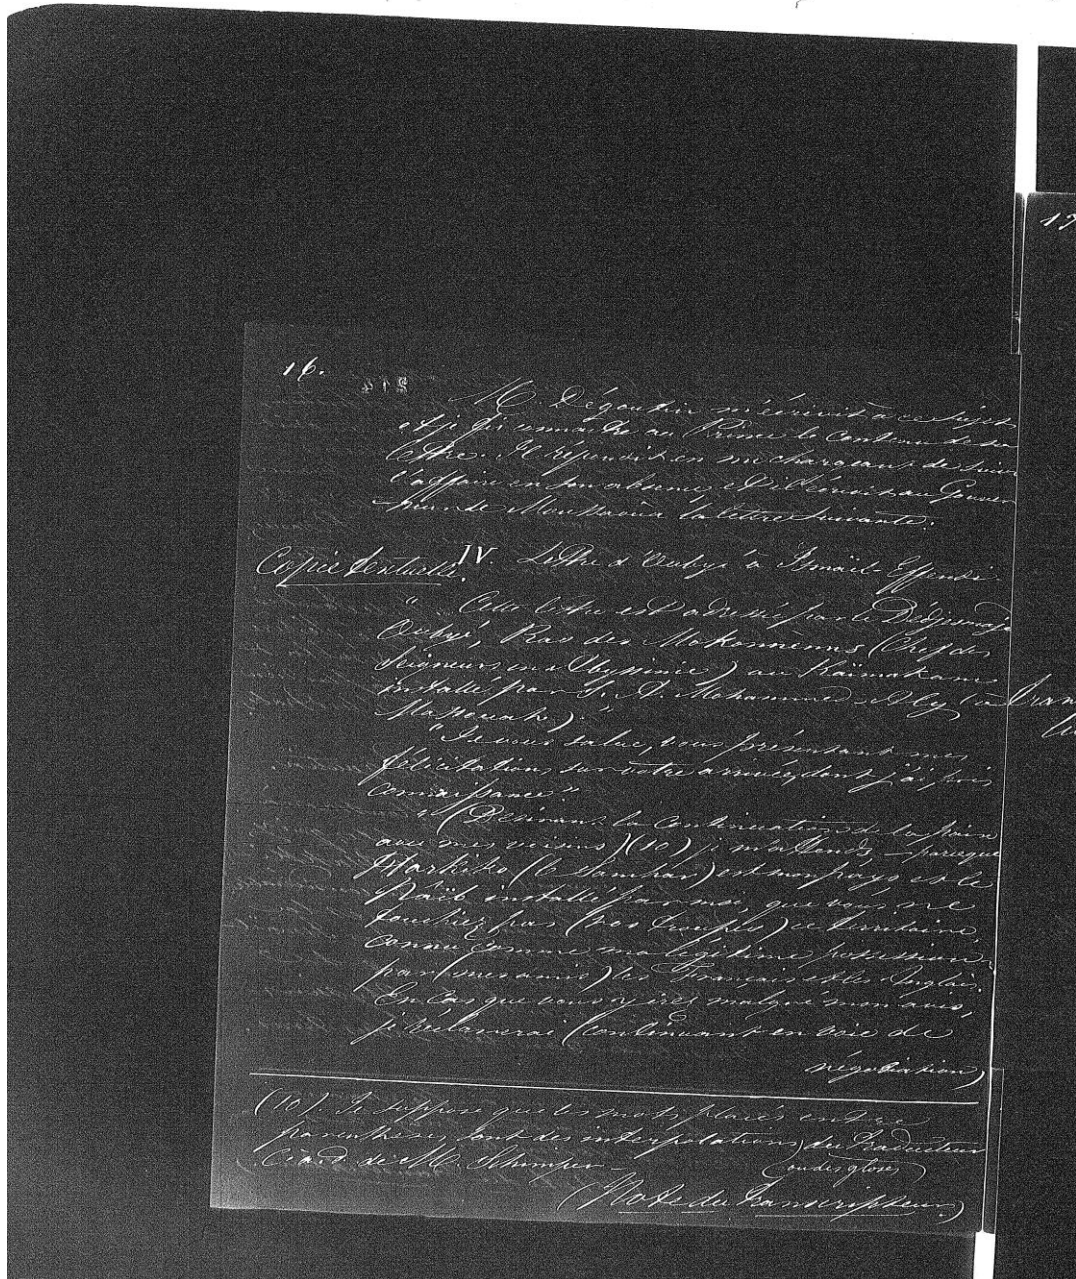 16.
M. Dégoutin m'écrivit à ce sujet
et je fis connaître au Prince le contenu de sa
lettre. Il répondit en me chargeant de suivre
l'affaire en son absence, et il écrivit au Gouver-
neur de Moussawa la lettre suivante.
Copie textuelle. IV. Lettre d'Oubyé à Ismaïl-Effendi.
" Cette lettre est adressée par le Dédjesmadje
Oubyé, Ras des Mokonnenns (Chef des
Seigneurs en Abyssinie) au Kaïmakam
installé par S. A. Mohammed-Aly (à
Massouah)."
"Je vous salue, vous présentant mes
félicitations sur votre arrivée, dont j'ai pris
connaissance"
"(Désirant la continuation de la paix
avec mes voisins)(10) je m'attends, – parceque
Harkiko (le Samhar) est mon pays et le
Naïb installé par moi, que vous ne
touchiez pas (vos troupes) ce territoire,
connu comme ma légitime possession
par (mes amis) les Français et les Anglais.
En cas que vous y irez malgré mon avis,
je réclamerai (continuant en voie de
négociation)
(10). Je suppose que les mots placés entre
parenthèses sont des interpolations du traducteur
(ou des gloses)
C. à. d. de M. Schimper –
(Note du transcripteur.)
17